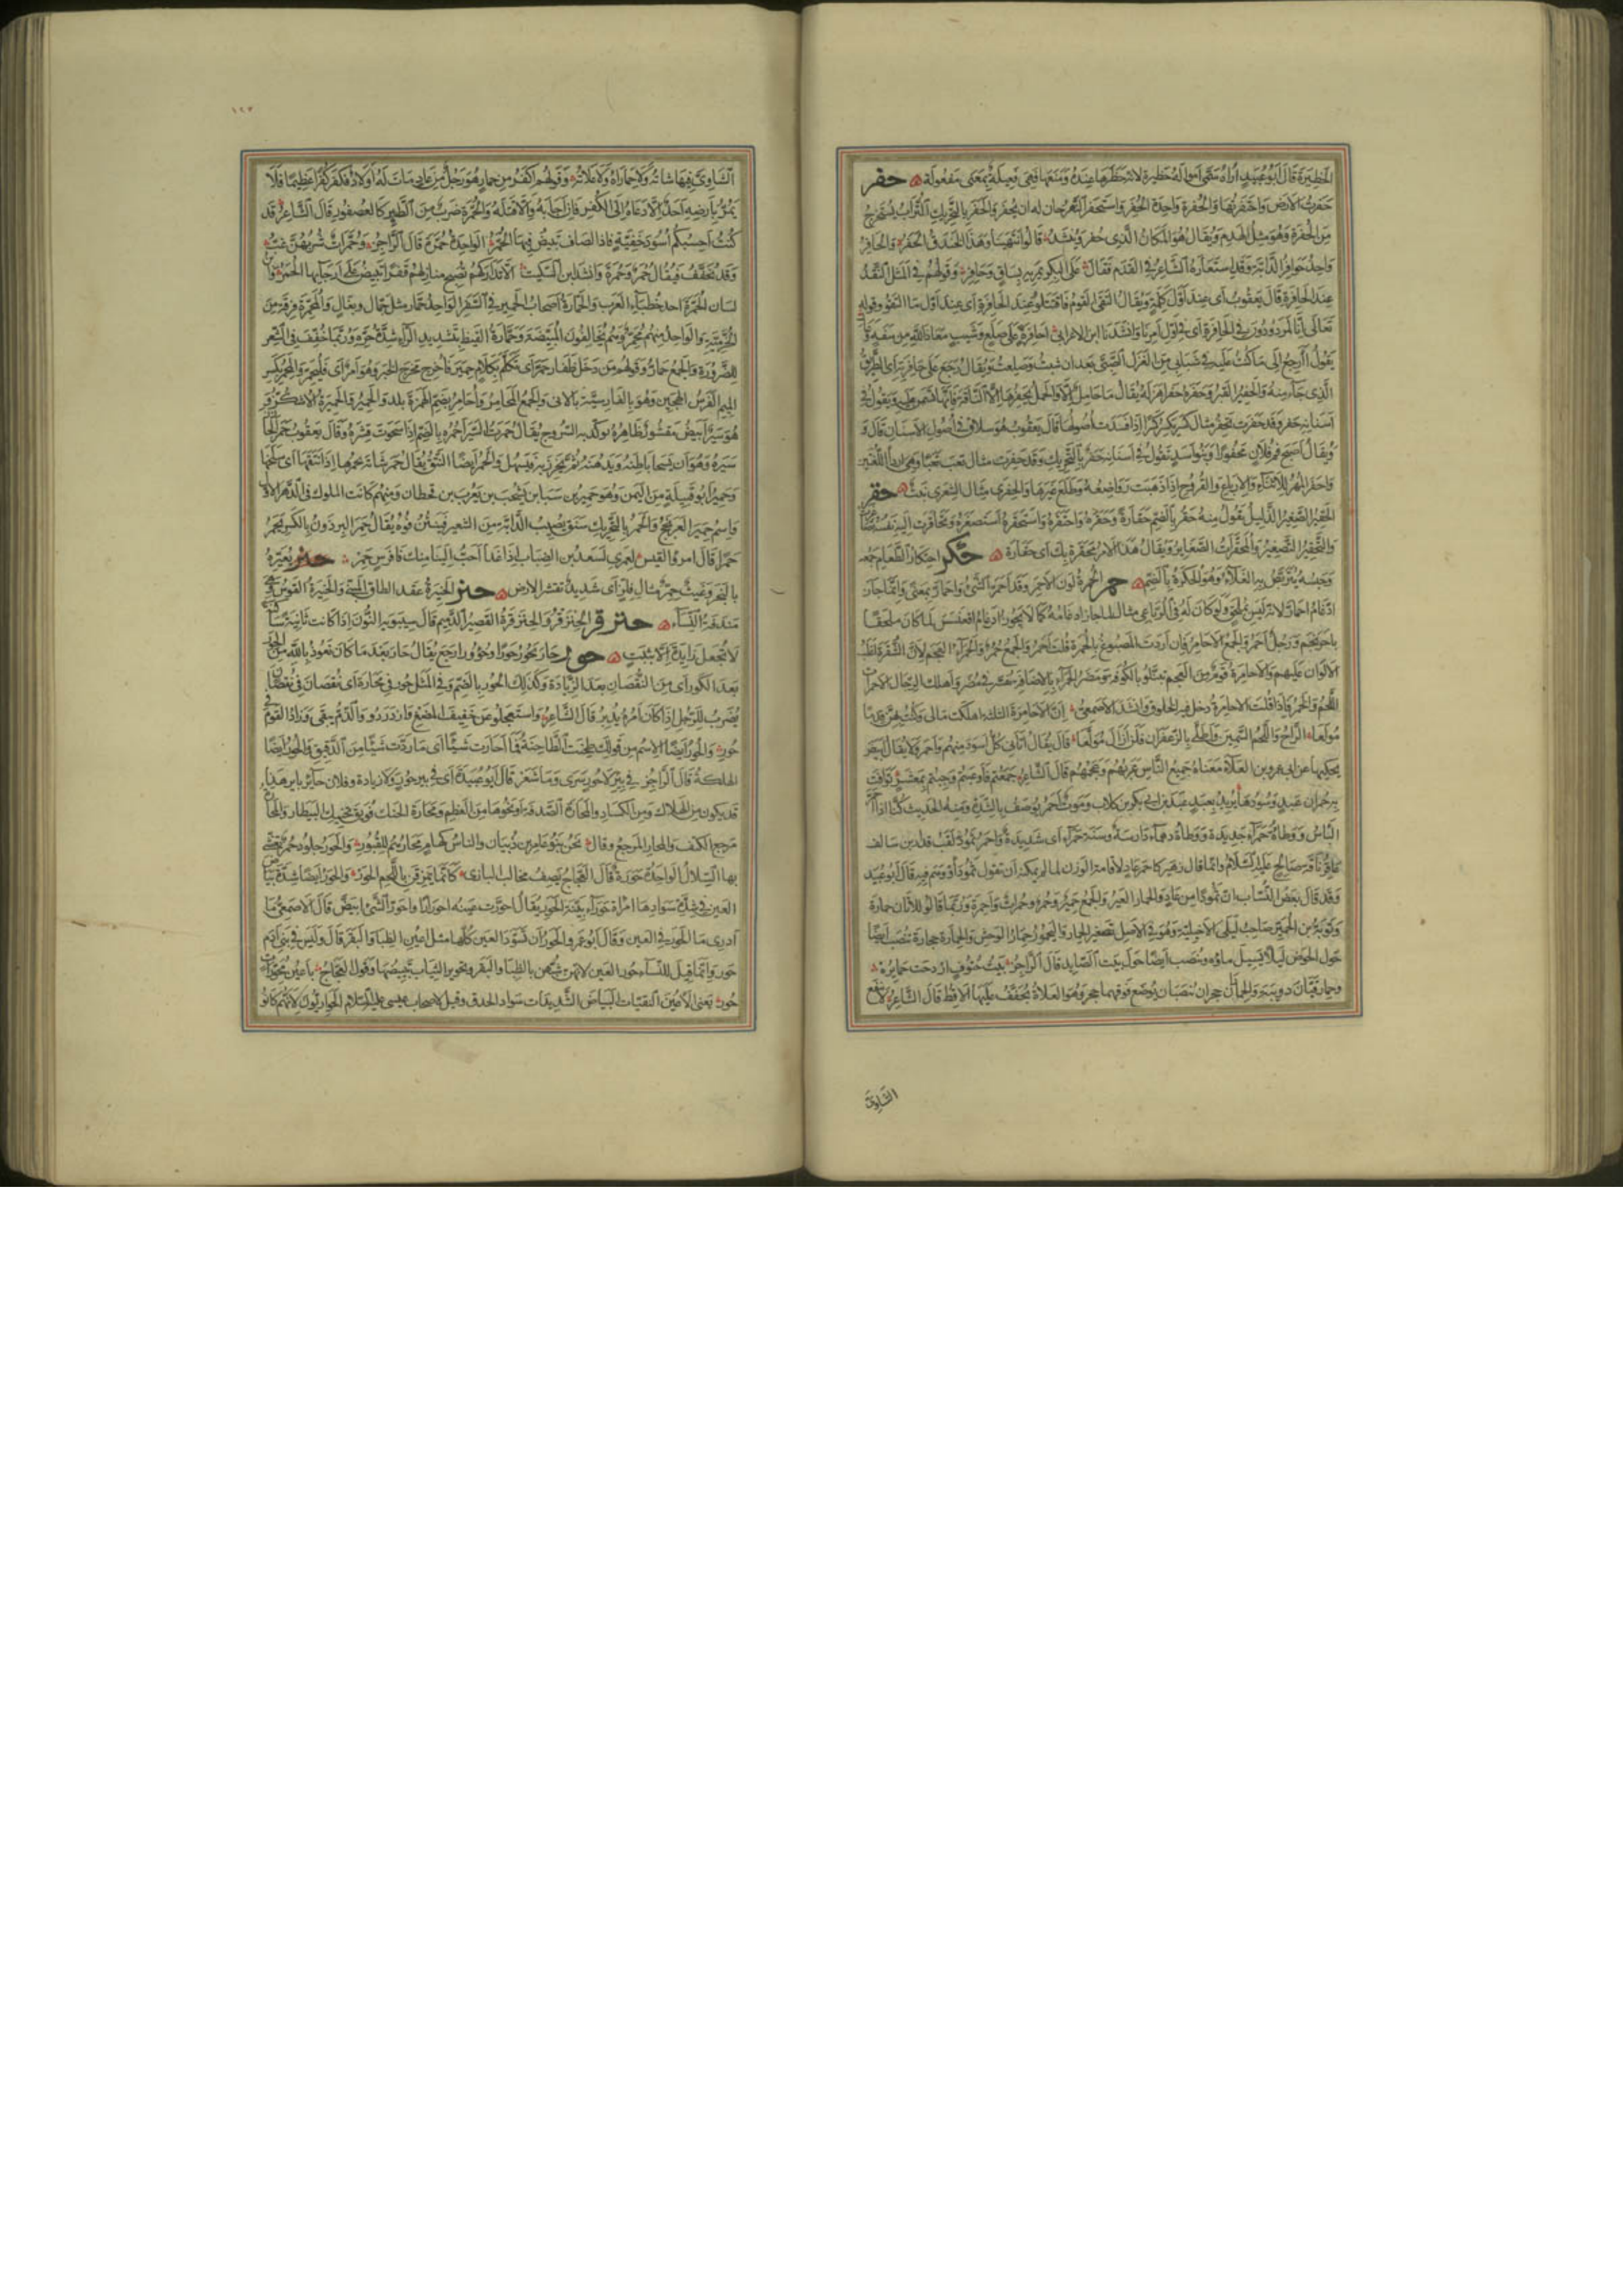 الحظيرة قال ابو عبيد اراه سمى امواله حظيرة لانه حظرها عنده ومنعها فهى فعيلة بمعنى مفعولة حفر
حفرت الارض واحتفرتها والحفرة واحدة الحفر واستحفر النهر حان له ان يحفر والحفر بالتحريك التراب يستخرج
من الحفرة وهو مثل الهدم ويقال هو المكان الذى حفر وينشد قالوا انتهينا وهذا الخندق الحفر والحافر
واحد حوافر الدابة وقد استعاره الشاعر فى القدم فقال على البكر يمريه بساق وحافر وقولهم فى المثل النقد
عند الحافرة قال يعقوب اى عند اول كلمة ويقال التقى القوم فاقتتلوا عند الحافرة اى عند اول ما التقوا وقوله
تعالى ائنا لمردودون فى الحافرة اى فى اول امرنا وانشدنا ابن الاعرابى احافرة على صلع وشيب معاذ الله من سفه و
يقول أأرجع الى ما كنت عليه فى شبابى من الغزل والصبى بعد ان شبت وصلعت ويقال رجع على حافرته اى الطريق
الذى جاء منه والحفير القبر وحفره حفرا هزله يقال ما حامل الا والحمل يحفرها الا الناقة فانها تسمن عليه ويقول فى
اسنانه حفر وقد حفرت تحفر مثال كسر يكسر كسرا اذا فسدت اصولها قال يعقوب هو سلاق فى اصول الاسنان قال و
ويقال اصبح فم فلان محفورا وبنو اسد تقول فى اسنانه حفر بالتحريك وقد حفرت مثال تعب تعبا وهى اردأ اللغتين
واحفر المهر للاثناء والارباع والقروح اذا ذهبت رواضعه وطلع غيرها والحفرى مثال الشعرى نبت حقر
الحقير الصغير الذليل تقول منه حقر بالضم حقارة وحقره واحتقره واستحقره استصغره وتحاقرت اليه نفسه
والتحقير التصغير والمحقرات الصغاير ويقال هذا الامر محقرة بك اى حقارة حكر احتكار الطعام جمعه
وحبسه يتربص به الغلاء وهو الحكرة بالضم حمر الحمرة لون الاحمر وقد احمر الشئ واحمار بمعنى وانما جاز
ادغام احمار لانه ليس بملحق ولو كان له فى الرباعى مثال لما جاز ادغامه كما لا يجوز ادغام اقعنسس لما كان ملحقا
باحرنجم ورجل احمر والجمع الاحامر فان اردت المصبوغ بالحمرة قلت احمر والجمع حمر والحمراء العجم لان الشقرة اغلب
الالوان عليهم والاحامرة قوم من العجم نزلوا بالكوفة ومضر الحمراء بالاضافة نفسر فى مضر واهلك الرجال الاحمران
اللحم والخمر فاذا قلت الاحامرة دخل فيه الخلوق وانشد الاصمعى ان الاحامرة الثلاثة اهلكت مالى وكنت بهن قدما
مولعا الراح واللحم السمين واطلى بالزعفران فلن ازال مولعا قال يقال اتانى كل اسود منهم واحمر ولا يقال ابيض
يحكيها عن ابى عمرو بن العلاء معناه جميع الناس عربهم وعجمهم قال الشاعر جمعتم فاوعيتم وجئتم بمعشر توافت
به حمران عبد وسودها يريد بعبد عبد بن ابى بكر بن كلاب وموت احمر يوصف بالشدة ومنه الحديث كنا اذا احمر
البأس ووطأة حمراء جديدة ووطأة دهماء دارسة وسنة حمراء اى شديدة واحمر ثمود لقب قدار بن سالف
عاقر ناقة صالح عليه السلام وانما قال زهير كاحمر عاد لاقامة الوزن لما لم يمكنه ان يقول ثمود او وهم فيه قال ابو عبيد
وقد قال بعض النساب ان ثمودا من عاد والحمار العير والجمع حمير وحمر وحمرات واحمرة وربما قالوا للاتان حمارة
وتوبة بن الحمير صاحب ليلى الاخيلية وهو فى الاصل تصغير الحمار واليحمور حمار الوحش والحمارة حجارة تنصب ايضا
حول الحوض ليلا يسيل ماؤه وتنصب ايضا حول بيت الصايد قال الراجز بيت حتوف اردحت حمايره
وحمار قبان دويبة والحماران حجران ينصبان يوضع فوقهما حجر وهو العلاة يجفف عليها الاقط قال الشاعر لا ينفع
الشاوى
١٢٣
الشاوى فيها شاته ولا حماراه ولا علاته وقولهم اكفر من حمار هو رجل من عاد مات له اولاد فكفر كفرا عظيما فلا
يمر بارضه احد الا دعاه الى الكفر فان اجابه والا قتله والحمرة ضرب من الطير كالعصفور قال الشاعر قد
كنت احسبكم اسود خفية فاذا لصاف تبيض فيها الحمر الواحدة حمرة قال الراجز وحمرات شربهن غب
وقد يخفف فيقال حمر وحمرة وانشد ابن السكيت الا تداركهم تصبح منازلهم قفرا تبيض على ارجائها الحمر وابن
لسان الحمرة احد خطباء العرب والحمارة اصحاب الحمير فى السفر الواحد حمار مثل جمال وبغال والمحمرة فرقة من
الخرمية والواحد منهم محمر وهم يخالفون المبيضة وحمارة القيظ بتشديد الراء شدة حره وربما خفف فى الشعر
للضرورة والجمع حمار وقولهم من دخل ظفار حمر اى تكلم بكلام حمير فاخرج مخرج الخبر وهو امر اى فليحمر والمحمر بكسر
الميم الفرس الهجين وهو بالفارسية بالانى والجمع المحامر واحامر بضم الهمزة بلد والحمير والحميرة الاشكز و
هو سير ابيض مقشور ظاهره توكد به السروج يقال حمرت السير احمره بالضم اذا سحوت قشره وقال يعقوب حمر الخارز
سيره وهو ان يسحا باطنه ويدهنه ثم يخرز به فيسهل والحمر ايضا النتق يقال حمر شاته يحمرها اذا نتقها اى سلخها
وحمير ابو قبيلة من اليمن وهو حمير بن سبا بن يشجب بن يعرب بن قحطان ومنهم كانت الملوك فى الدهر الاول
واسم حمير العرنجج والحمر بالتحريك سنق يصيب الدابة من الشعير فينتن فوه يقال حمر البرذون بالكسر يحمر
حمرا قال امرؤ القيس لعمرى لسعد بن الضباب اذا غدا احب الينا منك فا فرس حمر
بالنجر وغيث حمر مثال فلز اى شديد تقشر الارض حنر الحنيرة عقد الطاق المبنى والحنيرة القوس
مندفة النساء حنزقر الحنزقر والحنزقرة القصير الدميم قال سيبويه النون اذا كانت ثانية ساكنة
لا تجعل زايدة الا بثبت حور حار يحور حورا وحؤورا رجع يقال حار بعد ما كان نعوذ بالله من الحور
بعد الكور اى من النقصان بعد الزيادة وكذلك الحور بالضم وفى المثل حور فى محارة اى نقصان فى نقصان
يضرب للرجل اذا كان امره يدبر قال الشاعر واستعجلوا عن خفيف المضغ فازدردوا والذم يبقى وزاد القوم فى
حور والحور ايضا الاسم من قولك طحنت الطاحنة فما احارت شيئا اى ما ردت شيئا من الدقيق والحور ايضا
الهلكة قال الراجز فى بئر لا حور سرى وما شعر قال ابو عبيدة اى فى بير حور ولا زيادة وفلان حاير باير هذا
قد يكون من الهلاك ومن الكساد والمحارة الصدفة او نحوها من العظم ومحارة الحنك فويق تحنيك البيطار والمحارة
مرجع الكتف والمحار المرجع وقال نحن بنو عامر بن ذبيان والناس كهام محارهم للقبور والحور جلود حمر تغشى
بها السلال الواحدة حورة قال العجاج يصف مخالب البازى كأنما يمزقن باللحم الحور والحور ايضا شدة بياض
العين فى شدة سوادها امرأة حوراء بينة الحور يقال احورت عينه احورارا واحور الشئ ابيض قال الاصمعى ما
ادرى ما الحور فى العين وقال ابو عمرو الحور ان تسود العين كلها مثل اعين الظبا والبقر قال وليس فى بنى آدم
حور وانما قيل للنساء حور العين لانهن شبهن بالظبا والبقر وتحوير الثياب تبييضها وقول العجاج باعين محورات
حور يعنى الاعين النقيات البياض الشديدات سواد الحدق وقيل لاصحاب عيسى عليه السلام الحواريون لانهم كانوا